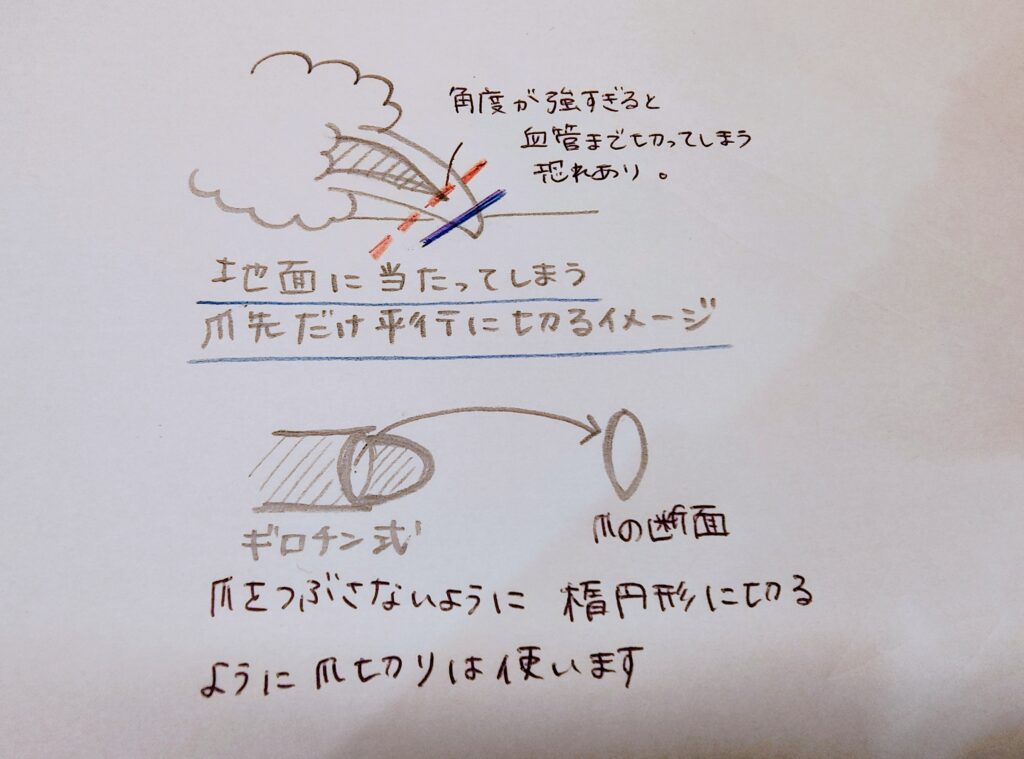 角度が強すぎると
血管まで切ってしまう
恐れあり。
地面に当たってしまう
爪先だけ平行に切るイメージ
ギロチン式
爪の断面
爪をつぶさないように 楕円形に切る
ように爪切りは使います